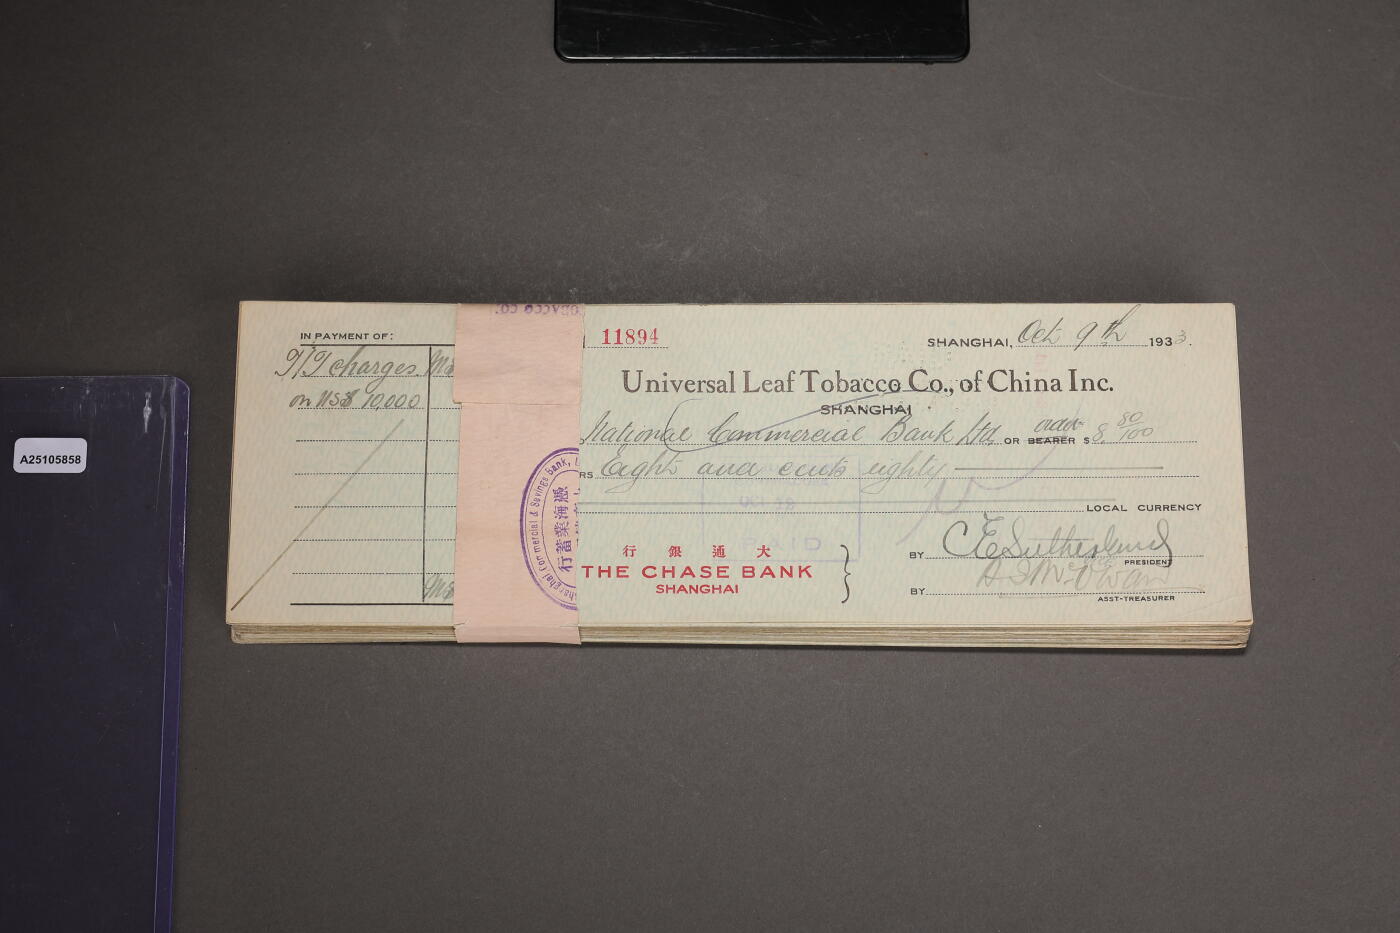 A25105858
IN PAYMENT OF:
T/T charges
on US$ 10,000
M$
M$
TOBACCO CO.
11894
SHANGHAI, Oct 9th 1933.
Universal Leaf Tobacco Co., of China Inc.
SHANGHAI
National Commercial Bank Ltd. OR BEARER order $ 8. 80/100
RS Eight and cents eighty
LOCAL CURRENCY
OCT 12
PAID
Shanghai Commercial & Savings Bank, L
行 銀 通 大
THE CHASE BANK
SHANGHAI
BY C E Sutherland
PRESIDENT
BY
ASST-TREASURER